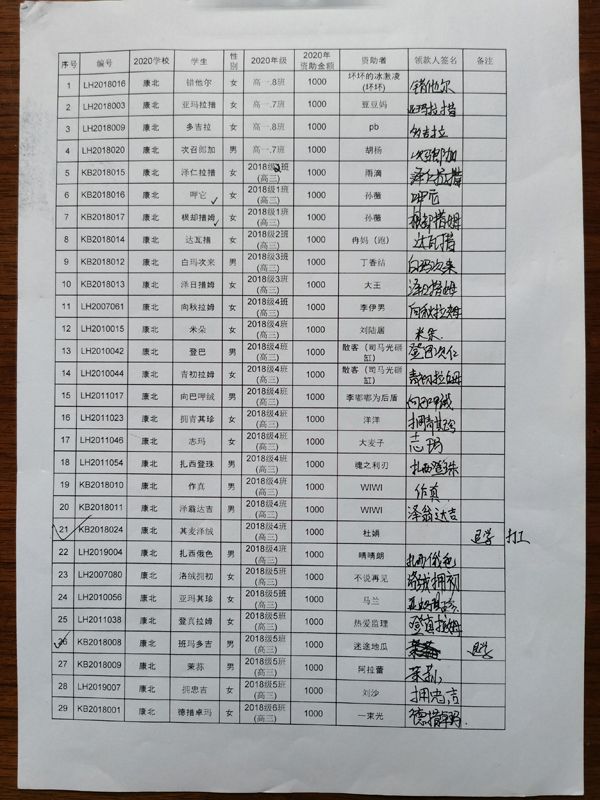 序号 编号 2020学校 学生 性别 2020年级 2020年资助金额 资助者 领款人签名 备注
1 LH2018016 康北 错他尔 女 高一.8班 1000 坏坏的冰激凌(坏坏) 错他尔
2 LH2018003 康北 亚玛拉措 女 高一.7班 1000 豆豆妈 亚玛拉措
3 LH2018009 康北 多吉拉 女 高一.8班 1000 pb 多吉拉
4 LH2018020 康北 次召郎加 男 高一.7班 1000 胡杨 次召郎加
5 KB2018015 康北 泽仁拉措 女 2018级2班(高三) 1000 雨滴 泽仁拉措
6 KB2018016 康北 呷它 女 2018级1班(高三) 1000 孙薇
7 KB2018017 康北 根却措姆 女 2018级1班(高三) 1000 孙薇 根却措姆
8 KB2018014 康北 达瓦措 女 2018级2班(高三) 1000 冉妈(逍) 达瓦措
9 KB2018012 康北 白玛次来 男 2018级3班(高三) 1000 丁香结 白玛次来
10 KB2018013 康北 泽日措姆 女 2018级3班(高三) 1000 大王 泽日措姆
11 LH2007061 康北 向秋拉姆 女 2018级4班(高三) 1000 李伊男 向秋拉姆
12 LH2010015 康北 米朵 女 2018级4班(高三) 1000 刘陆居 米朵
13 LH2010042 康北 登巴 男 2018级4班(高三) 1000 散客(司马光砸缸) 登巴次仁
14 LH2010044 康北 青初拉姆 女 2018级4班(高三) 1000 散客(司马光砸缸) 青初拉姆
15 LH2011017 康北 向巴呷绒 男 2018级4班(高三) 1000 李嘟嘟为后盾 向巴呷绒
16 LH2011023 康北 拥青其珍 女 2018级4班(高三) 1000 洋洋 拥青其珍
17 LH2011046 康北 志玛 女 2018级4班(高三) 1000 大麦子 志玛
18 LH2011054 康北 扎西登珠 男 2018级4班(高三) 1000 魂之利刃 扎西登珠
19 KB2018010 康北 作真 男 2018级4班(高三) 1000 WIWI 作真
20 KB2018011 康北 泽翁达吉 男 2018级4班(高三) 1000 WIWI 泽翁达吉
21 KB2018024 康北 其麦泽绒 男 2018级4班(高三) 1000 杜娟 退学 打工
22 LH2019004 康北 扎西俄色 男 2018级4班(高三) 1000 晴晴朗 扎西俄色
23 LH2007080 康北 洛绒拥初 女 2018级5班(高三) 1000 不说再见 洛绒拥初
24 LH2010056 康北 亚玛其珍 女 2018级5班(高三) 1000 马兰 亚玛其珍
25 LH2011038 康北 登真拉姆 女 2018级5班(高三) 1000 热爱监理 登真拉姆
26 KB2018008 康北 班玛多吉 男 2018级5班(高三) 1000 迷途地瓜 退学
27 KB2018009 康北 茉荪 男 2018级5班(高三) 1000 阿拉蕾
28 LH2019007 康北 拥忠吉 女 2018级5班(高三) 1000 刘沙 拥忠吉
29 KB2018001 康北 德措卓玛 女 2018级6班(高三) 1000 一束光 德措卓玛